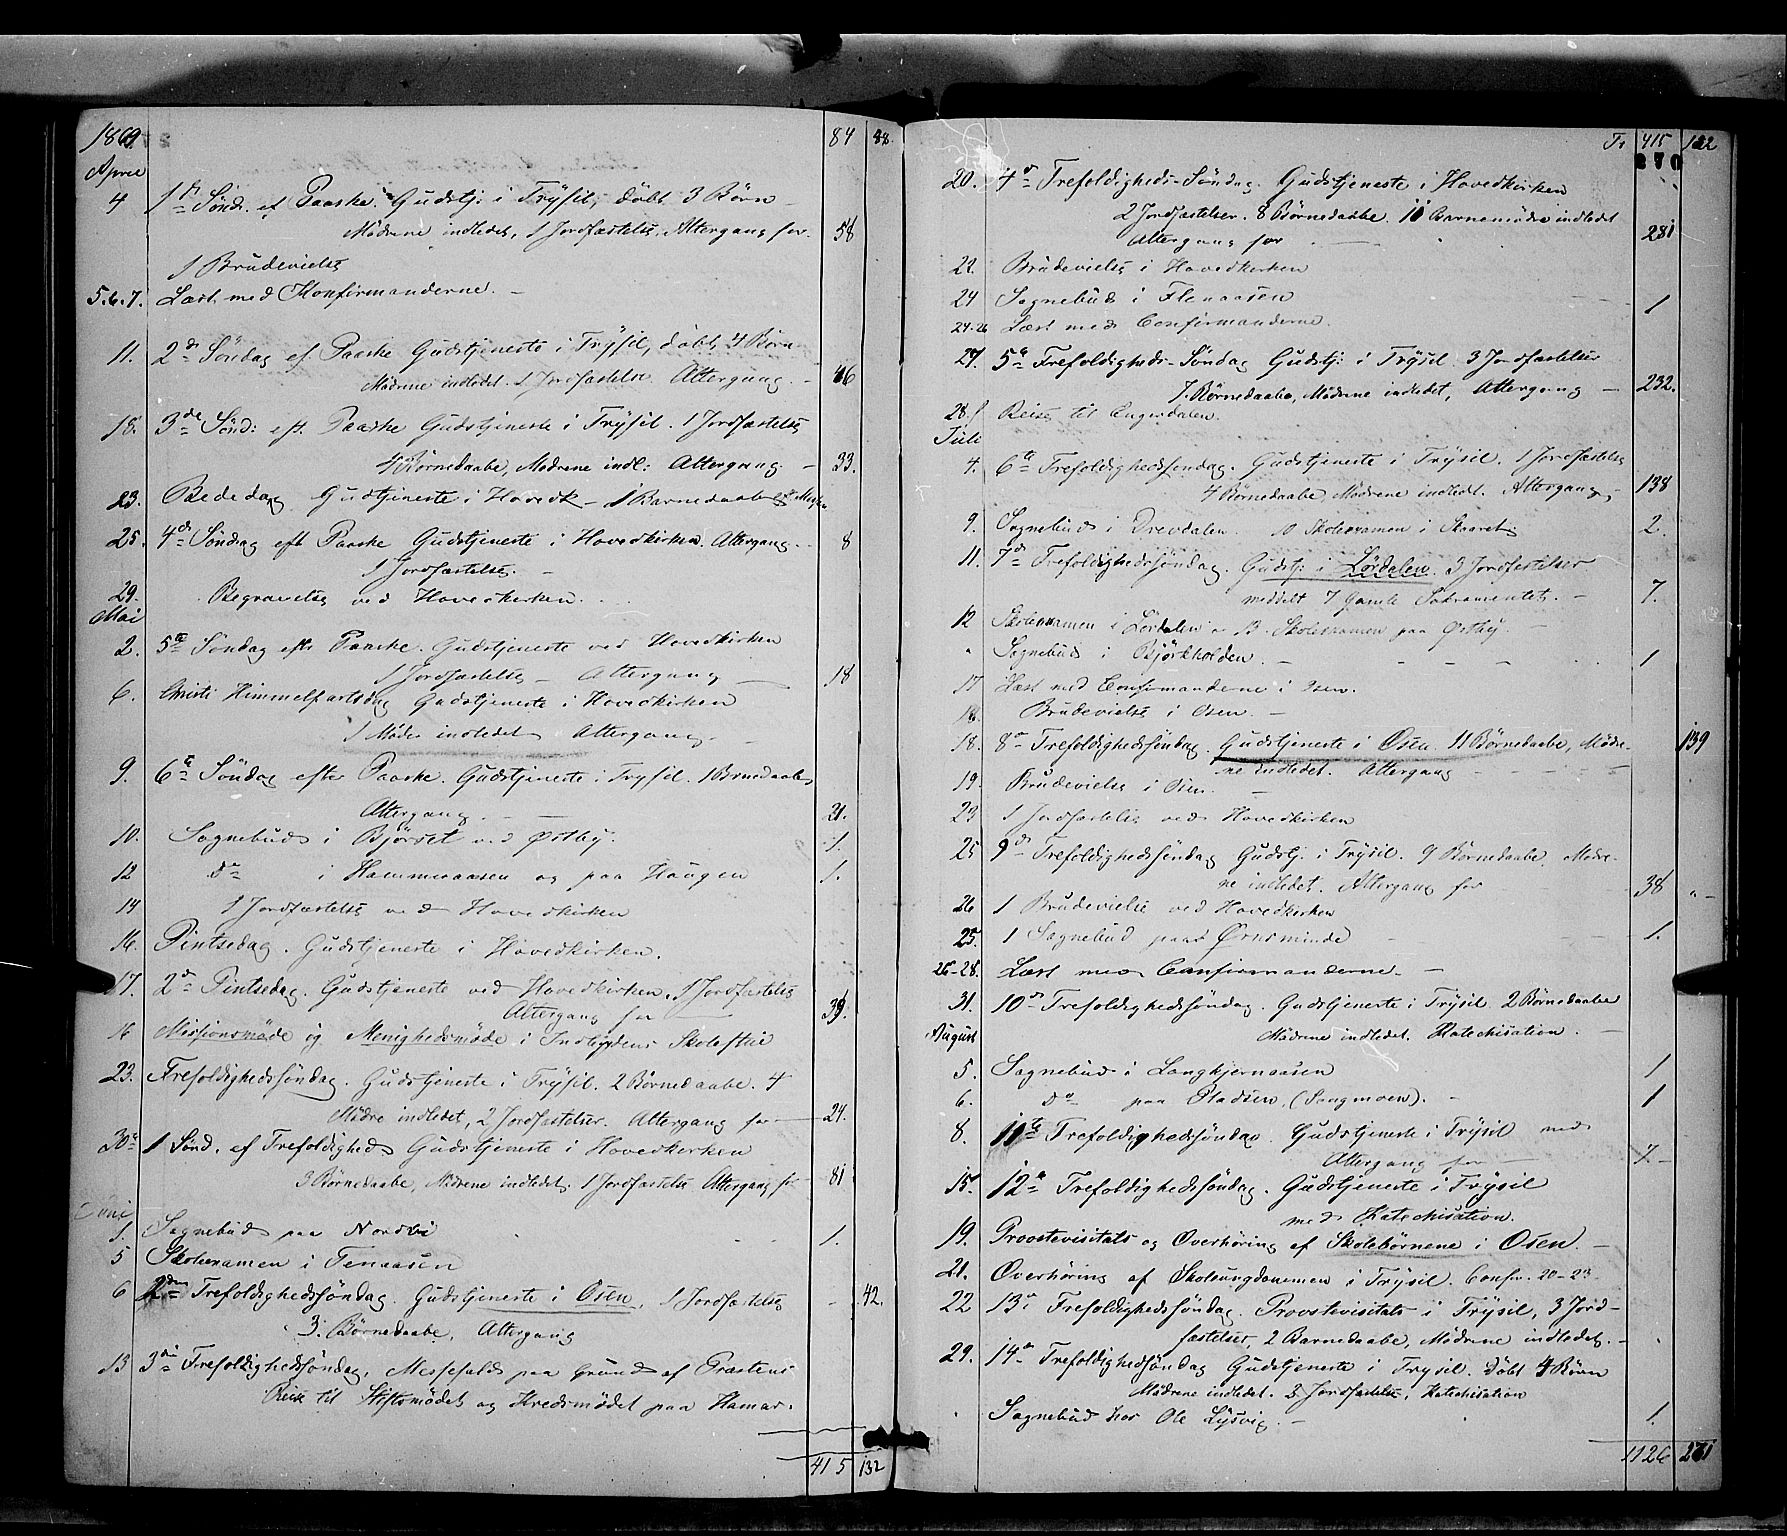 1869. 84 88.
April
4 1ste Sönd. ef. Paaske. Gudstj: i Trÿsil, döbt 3 Börn
Mödrene indledet, 1 Jordfæstelse, Altergang for. 58
1 Brudevielse
5. 6. 7. Læst med Konfirmanderne.
11. 2den Söndag ef. Paaske Gudstjeneste i Trÿsil, döbt 4 Börn
Mödrene indledet. 1 Jordfæstelse. Altergang. 46
18. 3die Sönd: eft. Paaske Gudstjeneste i Trÿsil. 1 Jordfæstelse
4 Börnedaabe, Mödrene indl: Altergang. 33.
23. Bededag Gudstjeneste i Hovedk – 1 Barnedaab
25. 4de Söndag eft Paaske Gudstjeneste i Hovedkirken. Altergang. 8
1 Jordfæstelse.
29. Begravelse ved Hovedkirken.
Mai
2. 5te Söndag eft. Paaske. Gudstjeneste ved Hovedkirken
1 Jordfæstelse – Altergang 18
6. Christi Himmelfartsdag Gudstjeneste i Hovedkirken
1 Moder indledet Altergang.
9. 6te Söndag efter Paaske. Gudstjeneste i Trysil. 1 Börnedaab,
Altergang. 21.
10. Sognebud i Bjørset ved Østby. 1.
12 do i Hammeraasen og paa Haugen 1.
14 1 Jordfæstelse ved Hovedkirken
16. Pintsedag. Gudstjeneste i Hovedkirken.
17. 2den Pintsedag. Gudstjeneste ved Hovedkirken. 1 Jordfæstelse
Altergang for 39.
16 Missionsmöde og Menighedsmöde i Indbygdens Skolestue
23. Trefoldighedssöndag. Gudstjeneste i Trÿsil. 2 Börnedaabe. 4
Mödre indledet, 2 Jordfæstelser. Altergang for 24.
30te 1 Sönd. ef Trefoldighed Gudstjeneste i Hovedkirken
3 Börnedaabe, Mödrene indledet. 1 Jordfæstelse Altergang for 81
Juni
1. Sognebud paa Nordbÿ 1.
5 Skolexamen i Tenaasen
6 2den Trefoldighedssöndag. Gudstjeneste i Osen. 1 Jordfæstelse – 42.
3. Börnedaabe, Altergang
13 3die Trefoldighedssöndag. Messefald paa Grund af Præstens
Reise til Stiftsmödet og Kredsmödet paa Hamar.
415 132
Tr. 415 132
270
20. 4de Trefoldigheds-Söndag. Gudstjeneste i Hovedkirken
2 Jordfæstelser. 8 Börnedaabe. 10 Barnemödre indledet
Altergang for 281
22. Brudevielse i Hovedkirken
24 Sognebud i Flenaasen 1
24-26 Læst med Confirmanderne.
27. 5te Trefoldigheds-Söndag Gudstj: i Trÿsil. 3 Jordfæstelser
7 Börnedaabe, Mödrene indledet, Altergang – 232.
28. Reise til Engerdalen.
Juli
4. 6te Trefoldighedssöndag. Gudstjeneste i Trÿsil. 1 Jordfæstelse
4 Börnedaabe, Mödrene indledt. Altergang, 138
9. Sognebud i Drevdalen. 10 Skolexamen i Skaaret 2.
11. 7de Trefoldighedssöndag. Gudstj: i Lördalen. 3 Jordfæstelser
meddelt 7 Gamle Sakramentet. – 7.
12 Skolexamen i Lördalen – 13. Skolexamen paa Østby.
" Sognebud i Björkholden. 1
17 Læst med Confirmanderne i Osen.
18. Brudevielse i Osen. –
18. 8de Trefoldighedssöndag. Gudstjeneste i Osen. 11 Börnedaabe, Mödre- 139
ne indledet. Altergang
19. Brudevielse i Osen.
23 1 Jordfæstelse ved Hovedkirken
25 9de Trefoldighedssöndag Gudstj. i Trÿsil. 9 Börnedaabe, Mödre-
ne indledet. Altergang for 38 "
26 1 Brudevielse ved Hovedkirken
25. 1 Sognebud paa Ørnsminde 1.
26-28. Læst med Confirmanderne. –
31. 10de Trefoldighedssöndag. Gudstjeneste i Trÿsil 2 Börnedaabe
August Mödrene indledet. Katechisation.
5. Sognebud i Langkjernaasen 1
6. do paa Pladsen, (Sangmoen). 1
8. 11te Trefoldighedssöndag. Gudstjeneste i Trÿsil med
Altergang for 7.
15. 12te Trefoldighedssöndag. Gudstjeneste i Trÿsil
med Katechisation.
19. Proostevisitats og Overhöring af Skolebörnene i Osen.
21. Overhöring af Skoleungdommen i Trÿsil. Confir. 20-23.
22 13de Trefoldighedssöndag. Proostevisitats i Trÿsil, 3 Jord-
fæstelser, 2 Barnedaabe, Mödrene indledet.
29. 14de Trefoldighedssöndag Gudstjeneste i Trysil. Döbt 4 Börn
Mödrene indledet. 2 Jordfæstelse, Katechisation
Sognebud hos Ole Lÿsvig. 1.
1126 271